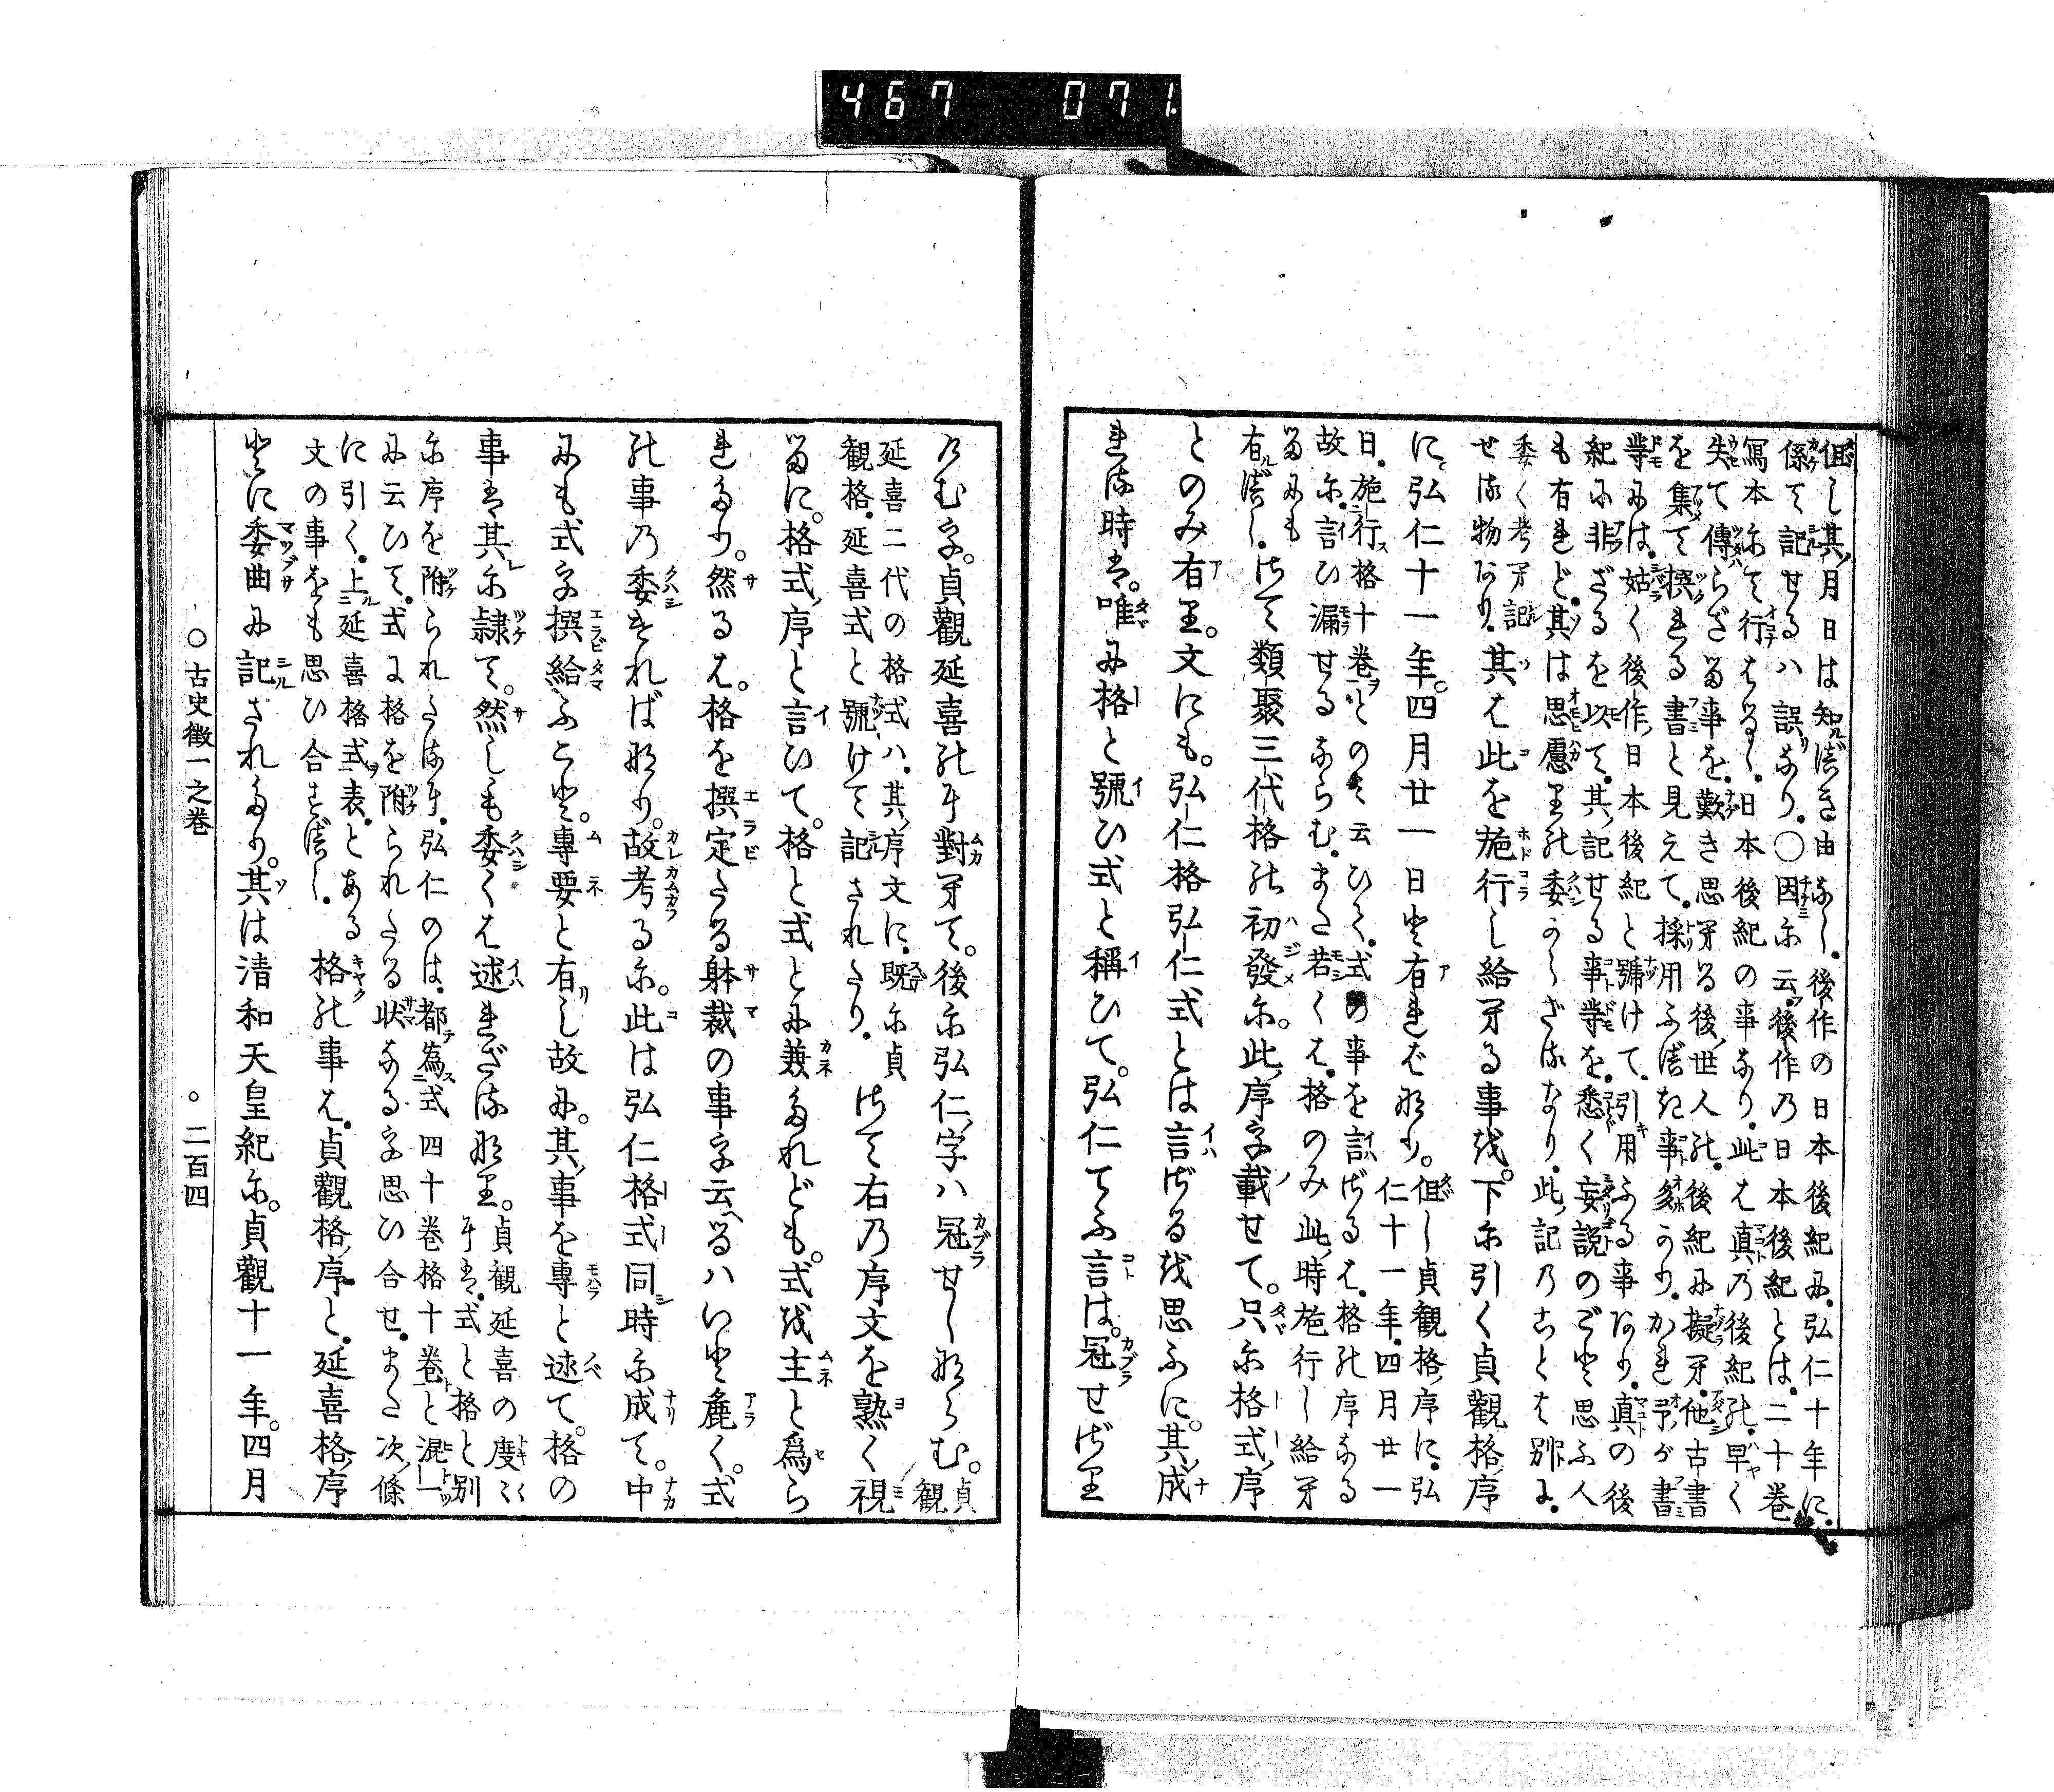 467 071
但し其月日は知べき由なし。後作の日本後紀に。弘仁十年に。
係て記せるハ誤なり。〇因に云。後作乃日本後紀とは。二十巻
寫本にて行はるゝ。日本後紀の事なり。此は真乃後紀の。早く
失て傳らざる事を。歎き思ける後世人の。後紀に擬へて。他古書
を集て撰れる書と見えて。採用ふべき事多かり。かれ予が書
等には。姑く後作日本後紀と號けて。引用ふる事あり。真の後
紀に非ざるを以て。其記せる事等を。悉く妄説のごと思ふ人
も有れど。其は思慮の委からざるなり。此記乃ことは別に。
委く考へ記
せる物あり。其は此を施行し給へる事を。下に引く貞觀格序
に。弘仁十一年。四月廿一日と有ればなり。但し貞観格序に。弘
仁十一年。四月廿一
日。施行格十巻とのみ云ひて。式の事を言ざるは。格の序なる
故に。言ひ漏せるならむ。また若くは。格のみ此時施行し給へ
るにも
有べし。さて類聚三代格の初發に。此序を載せて。只に格式序
とのみ有り。文にも。弘仁格弘仁式とは言ざるを思ふに。其成
れる時は。唯に格と號ひ式と稱ひて。弘仁てふ言は。冠せざり
けむを。貞觀延喜のに對へて。後に弘仁字ハ冠せしならむ。貞
観
延喜二代の格式ハ。其序文に。既に貞
観格。延喜式と號けて記されたり。さて右乃序文を熟く視
るに。格式序と言ひて。格と式とに兼たれども。式を主と爲ら
れたり。然るは。格を撰定たる躰裁の事を云へるハいと麁く。式
の事乃委ければなり。故考るに。此は弘仁格式同時に成て。中
にも式を撰給ふこと。專要と有し故に。其事を專と述て。格の
事は其に隷て。然しも委くは述れざるなり。貞観延喜の度々
のは。式と格と別
に序を附られたるを。弘仁のは。都為式四十巻格十巻と混一
に云ひて。式に格を附られたる状なるを思ひ合せ。また次條
に引く。上延喜格式表。とある
文の事をも思ひ合すべし。格の事は。貞觀格序と。延喜格序
とに委曲に記されたり。其は清和天皇紀に。貞觀十一年。四月
〇古史徴一之巻 〇二百四